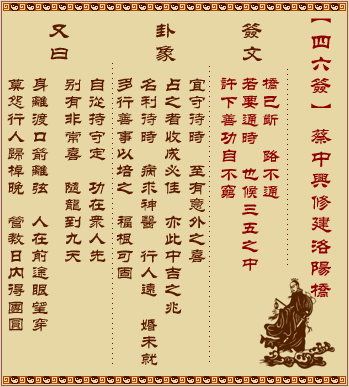 【四六簽】 蔡中興修建洛陽橋
簽文
橋已斷 路不通
若要通時 也候三五之中
許下善功自不窮
卦象
宜守待時 至有意外之喜
占之者收成必佳 亦此中吉之兆
名利待時 病求神醫 行人遠 婚未就
多行善事以培之 福根可固
又曰
自從持守定 功在眾人先
別有非常喜 隨龍到九天
身離渡口箭離弦 人在前途眼望穿
莫怨行人歸棹晚 管教日內得團圓